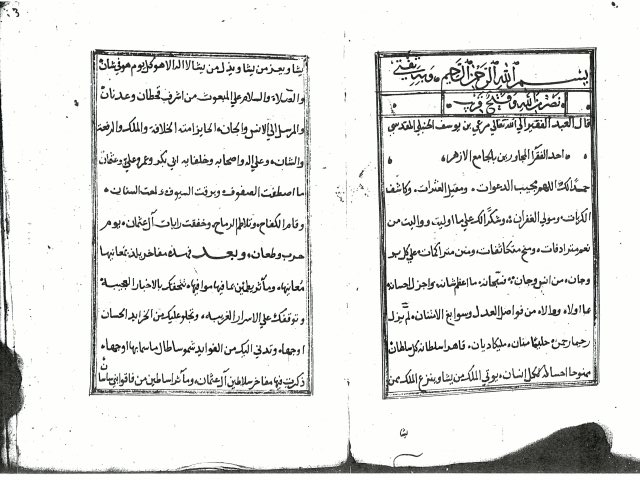 بسم الله الرحمن الرحيم وبه ثقتي
نصر من الله وفتح قريب
قال العبد الفقير الى الله تعالى مرعي بن يوسف الحنبلي المقدسي
احد الفقرا المجاورين بالجامع الازهر
حمدا لك اللهم مجيب الدعوات ومقيل العثرات وكاشف
الكربات ومولي الغفران وشكرا لك على ما اوليت وواليت من
نعم مترادفات ومنح متكاثفات ومنن متراكمات على كل
وجان من انس وجان فسبحانه ما اعظم شانه واجزل احسانه
على ما اولاه ووالاه من فواصل العدل وسوابغ الامتنان لم يزل
رحيما رحمن حليما منان مليكا ديان قاهرا سلطانه كل سلطان
ممنوحا احسانه لكل انسان يوتي الملك من يشا وينزع الملك ممن
يشا
يشا ويعز من يشا ويذل من يشا لا اله الا هو كل يوم هو في شان
والصلاة والسلام على المبعوث من اشرف قحطان وعدنان
والمرسل الى الانس والجان الحايز امته الخلافة والملك والرفعة
والشان وعلى اله واصحابه وخلفايه ابي بكر وعمر وعلي وعثمان
ما اصطفت الصفوف وبرقت السيوف ولمعت السنان
وقام الكفاح وتلاطم الرماح وخفقت رايات آل عثمان يوم
حرب وطعان وبعد فهذه مفاخر يلذ بمعانيها
معانيها ومآثر يظن عافيها موافيها تتحفك بالاخبار العجيبة
وتوقفك على الاسرار الغريبة وتجلو عليك من الخرايد الحسان
اوجها وتدني اليك من الفوايد شموسا طال ما سما بها اوجها
ذكرت فيها مفاخر سلاطين آل عثمان ومآثر اساطين من فاقوا بني ساسان